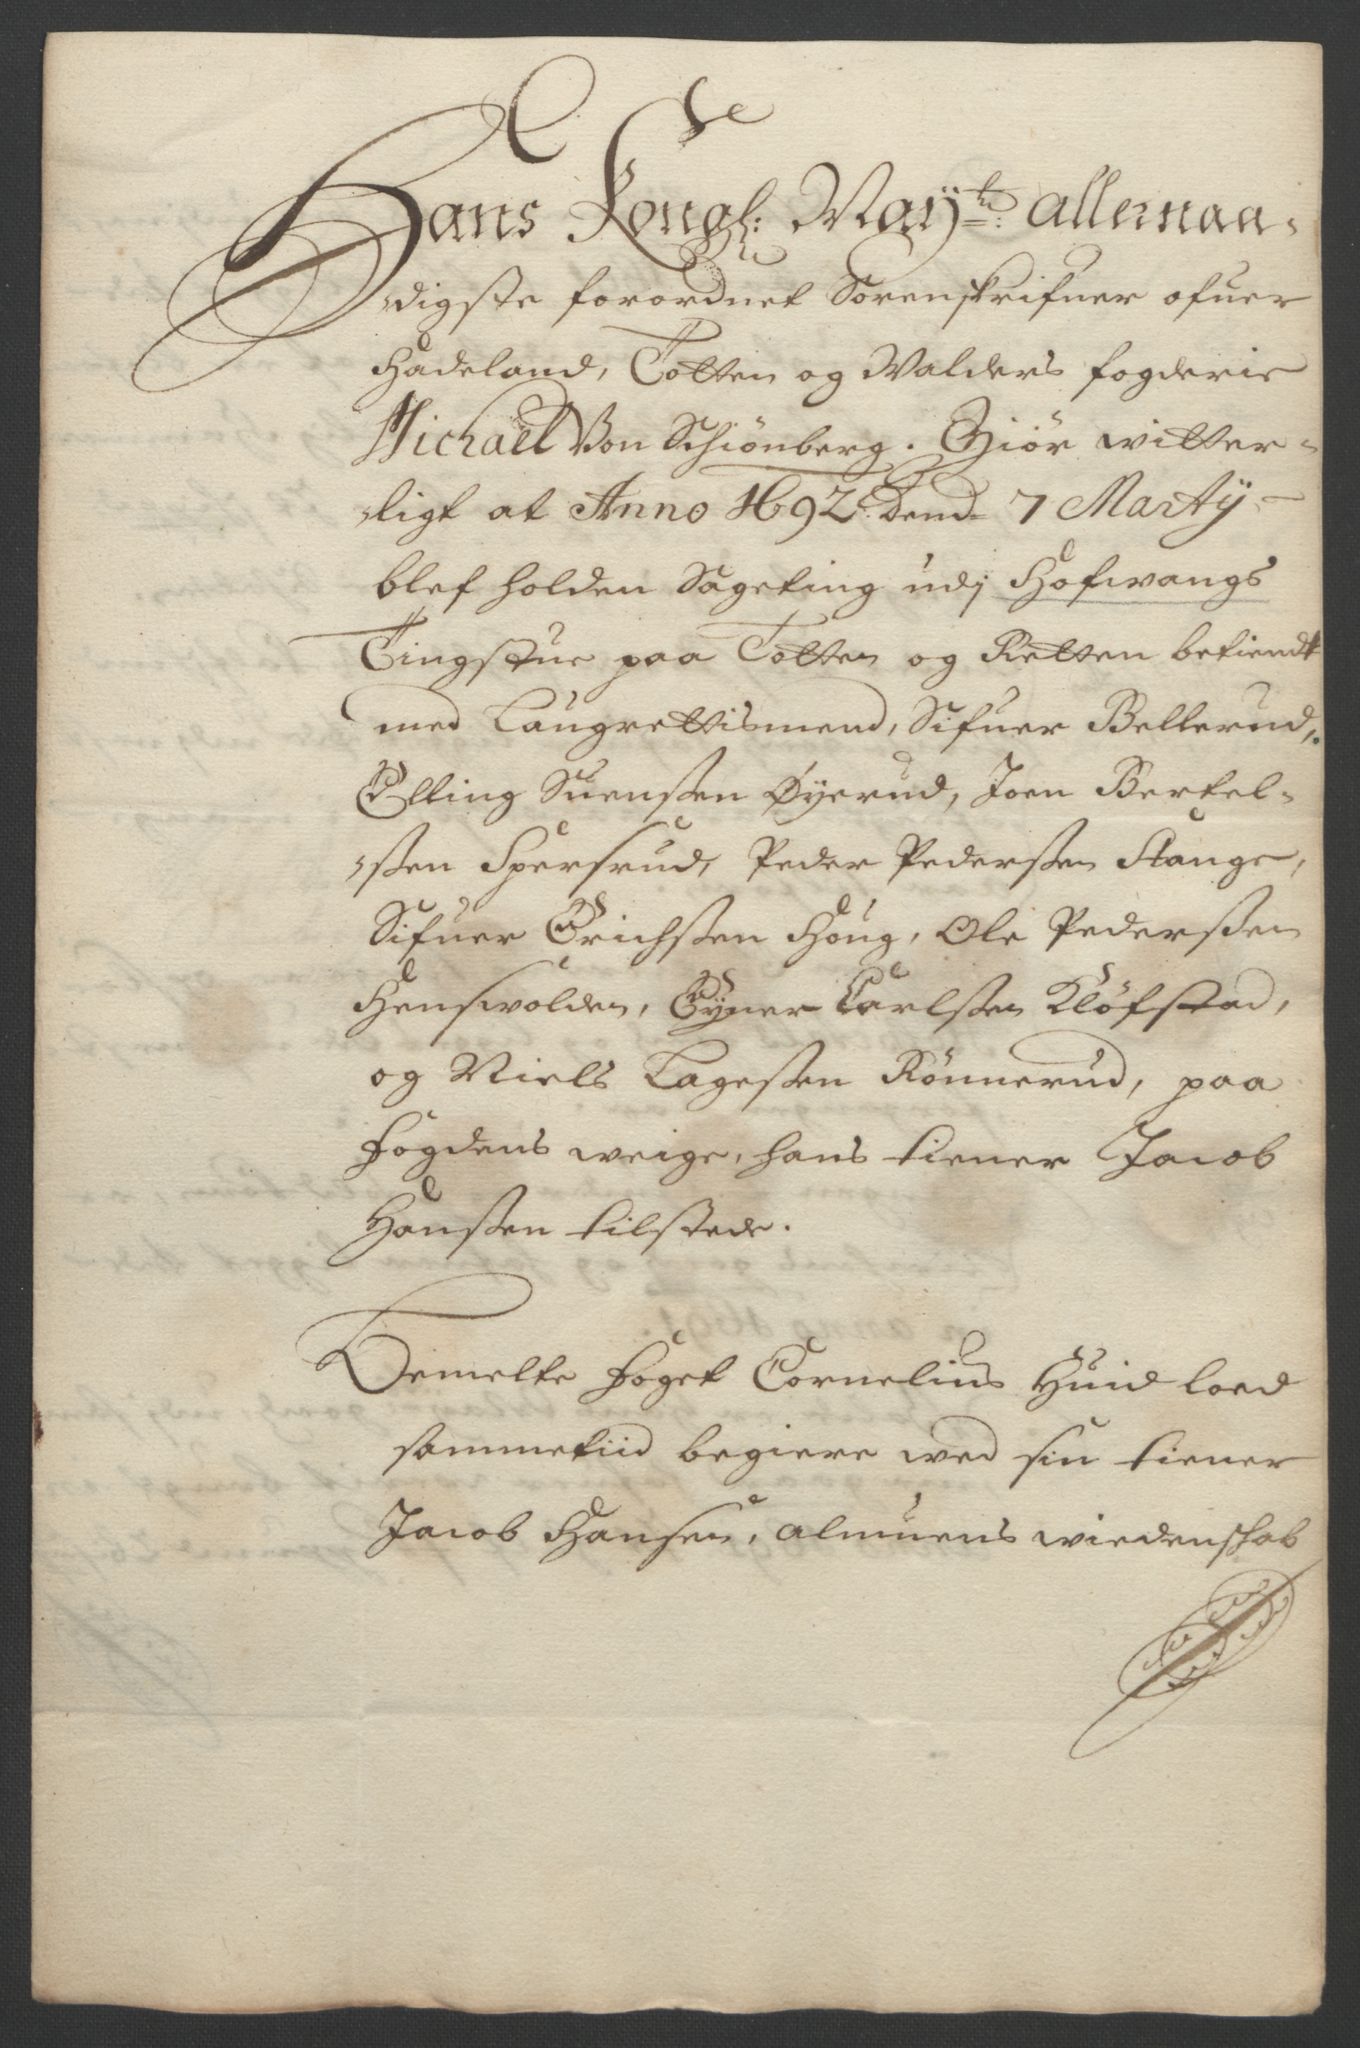 Hans Kongl: Maÿ.tz: allernaa-
digste forordnet Sorenskrifuer ofuer
Hadeland, Totten og Walders fogderie
Michaël Von Schiönberg. Giör witter-
ligt at Anno 1692 dend 7 Martÿ
blef holden Sageting udj Hofwangs
Tingstue paa Totten og Retten betiendt
med Laugrettismend, Sifuer Bellerud,
Elling Suensen Øÿerud, Joen Bertel-
sen Spersrud, Peder Pedersen Stange,
Sifuer Erichsen Houg, Ole Pedersen
Henswolden, Eÿner Carlsen Klöfstad,
og Niels Lagesen Rönnerud, paa
fogdens weige, hans tiener Jacob
Hansen tilstede.
Bemelte foget Cornelius Huid loed
sammetiid begiere wed sin tiener
Jacob Hansen, almuens wiedenskab